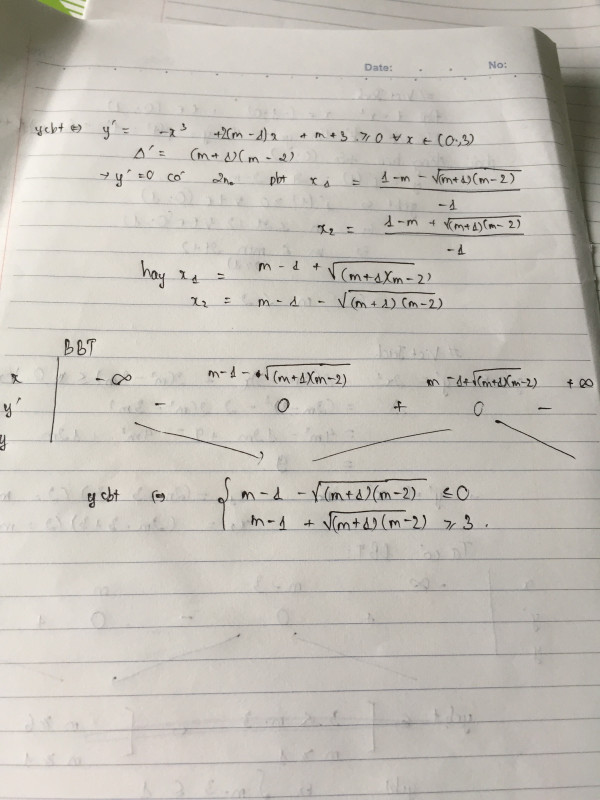 Date: . . No:
ycbt ⇔ y' = -x³ +2(m-1)x + m+3 ≥ 0 ∀ x ∈ (0;3)
Δ' = (m+1)(m-2)
→ y' = 0 có 2no pbt x₁ = (1-m-√(m+1)(m-2))/-1
x₂ = (1-m+√(m+1)(m-2))/-1
hay x₁ = m-1+√(m+1)(m-2)
x₂ = m-1-√(m+1)(m-2)
BBT
x -∞ m-1-√(m+1)(m-2) m-1+√(m+1)(m-2) +∞
y' - 0 + 0 -
y
ycbt ⇔ { m-1-√(m+1)(m-2) ≤ 0
m-1+√(m+1)(m-2) ≥ 3.